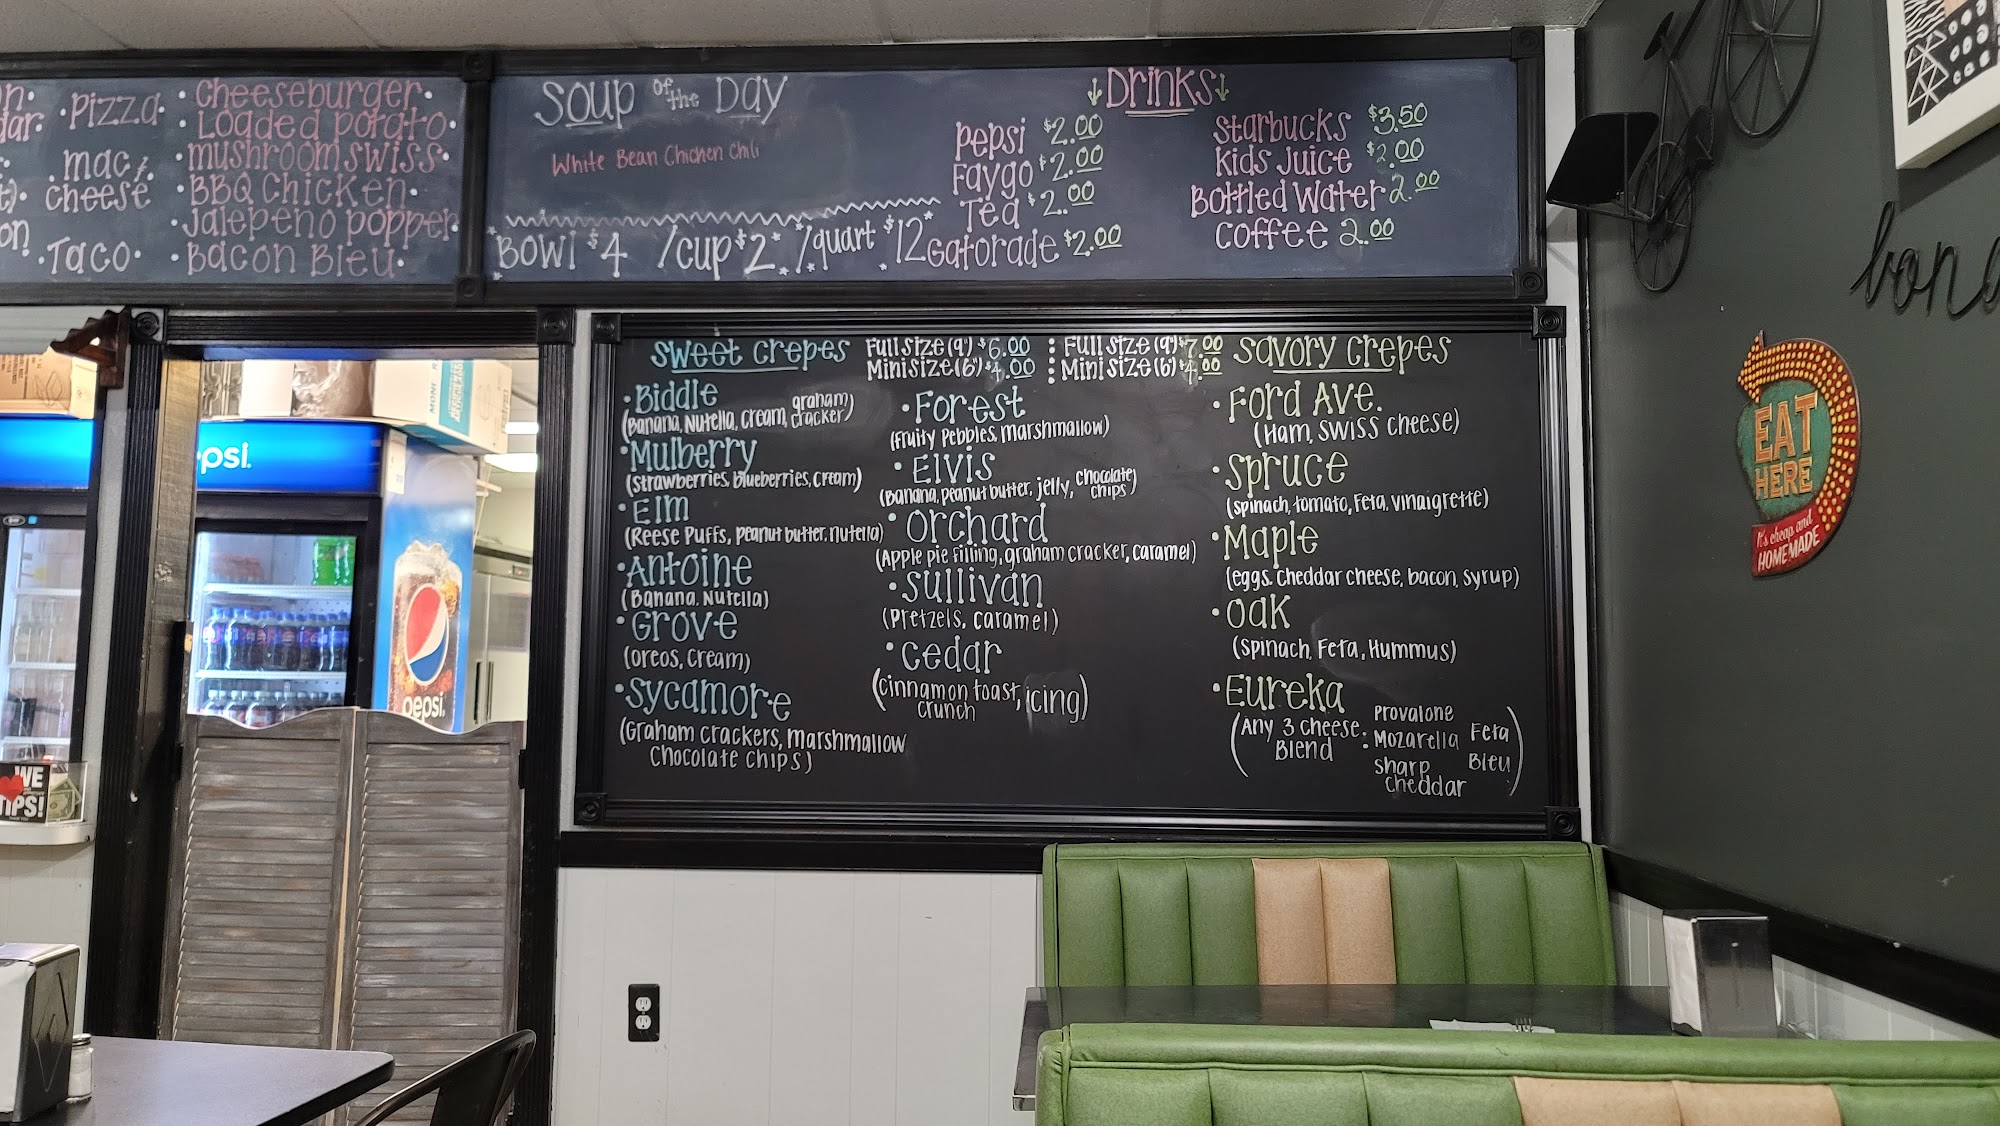 Pizza
mac &
cheese
Taco
Cheeseburger
Loaded potato
mushroom swiss
BBQ Chicken
Jalepeno popper
Bacon Bleu
Soup of the Day
White Bean Chicken Chili
Bowl $4 /cup $2 /quart $12
Drinks
Pepsi $2.00
Faygo $2.00
Tea $2.00
Gatorade $2.00
Starbucks $3.50
Kids Juice $2.00
Bottled Water 2.00
Coffee 2.00
Sweet Crepes
Full size (9") $6.00
Mini size (6") $4.00
Biddle
(Banana, Nutella, cream, graham cracker)
Mulberry
(strawberries, blueberries, cream)
Elm
(Reese Puffs, peanut butter, nutella)
Antoine
(Banana, Nutella)
Grove
(oreos, cream)
Sycamore
(Graham crackers, marshmallow
chocolate chips)
Forest
(fruity pebbles, marshmallow)
Elvis
(Banana, peanut butter, jelly, chocolate chips)
Orchard
(Apple pie filling, graham cracker, caramel)
Sullivan
(Pretzels, caramel)
Cedar
(cinnamon toast crunch, icing)
Full size (9") $7.00
Mini size (6") $4.00
Savory Crepes
Ford Ave.
(Ham, swiss cheese)
Spruce
(spinach, tomato, feta, vinaigrette)
Maple
(eggs, cheddar cheese, bacon, syrup)
Oak
(spinach, Feta, Hummus)
Eureka
(Any 3 cheese
Blend
Provalone
Mozarella
sharp
cheddar
Feta
Bleu)
EAT
HERE
It's cheap, and
HOMEMADE
bon a
psi
pepsi
WE
TIPS!